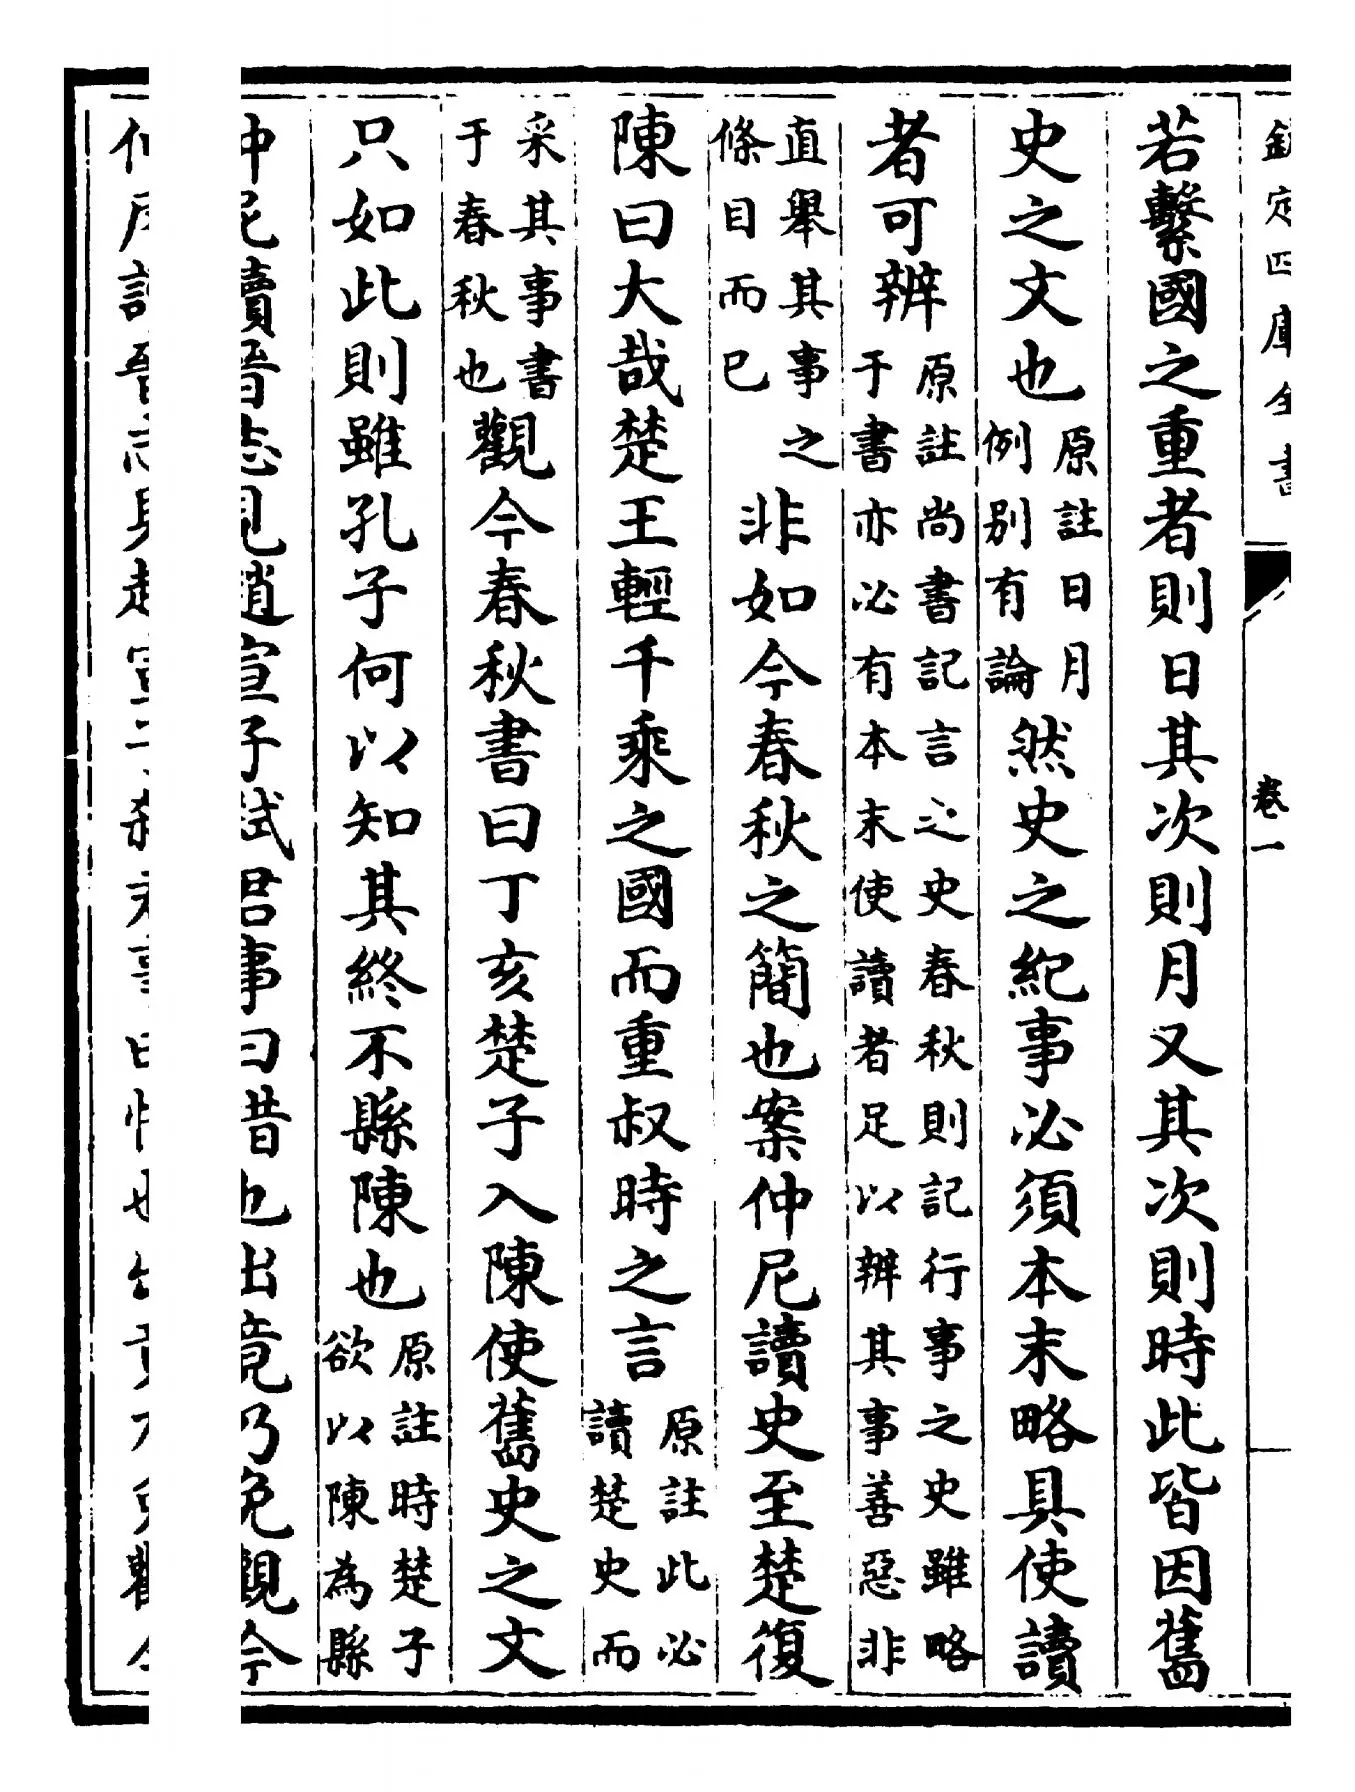 欽定四庫全書 卷一
若繫國之重者則日其次則月又其次則時此皆因舊
史之文也原註日月例別有論然史之紀事必須本末略具使讀
者可辨原註尚書記言之史春秋則記行事之史雖略于書亦必有本末使讀者足以辨其事善惡非
直舉其事之條目而巳非如今春秋之簡也案仲尼讀史至楚復
陳曰大哉楚王輕千乘之國而重叔時之言原註此必讀楚史而
采其事書于春秋也觀今春秋書曰丁亥楚子入陳使舊史之文
只如此則雖孔子何以知其終不縣陳也原註時楚子欲以陳為縣
仲尼讀晉志見趙宣子弒君事曰惜也出竟乃免觀今